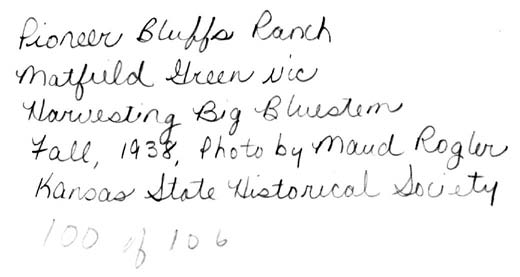 Pioneer Bluffs Ranch
Matfield Green vic
Harvesting Big Bluestem
Fall, 1938, Photo by Maud Rogler
Kansas State Historical Society
100 of 106